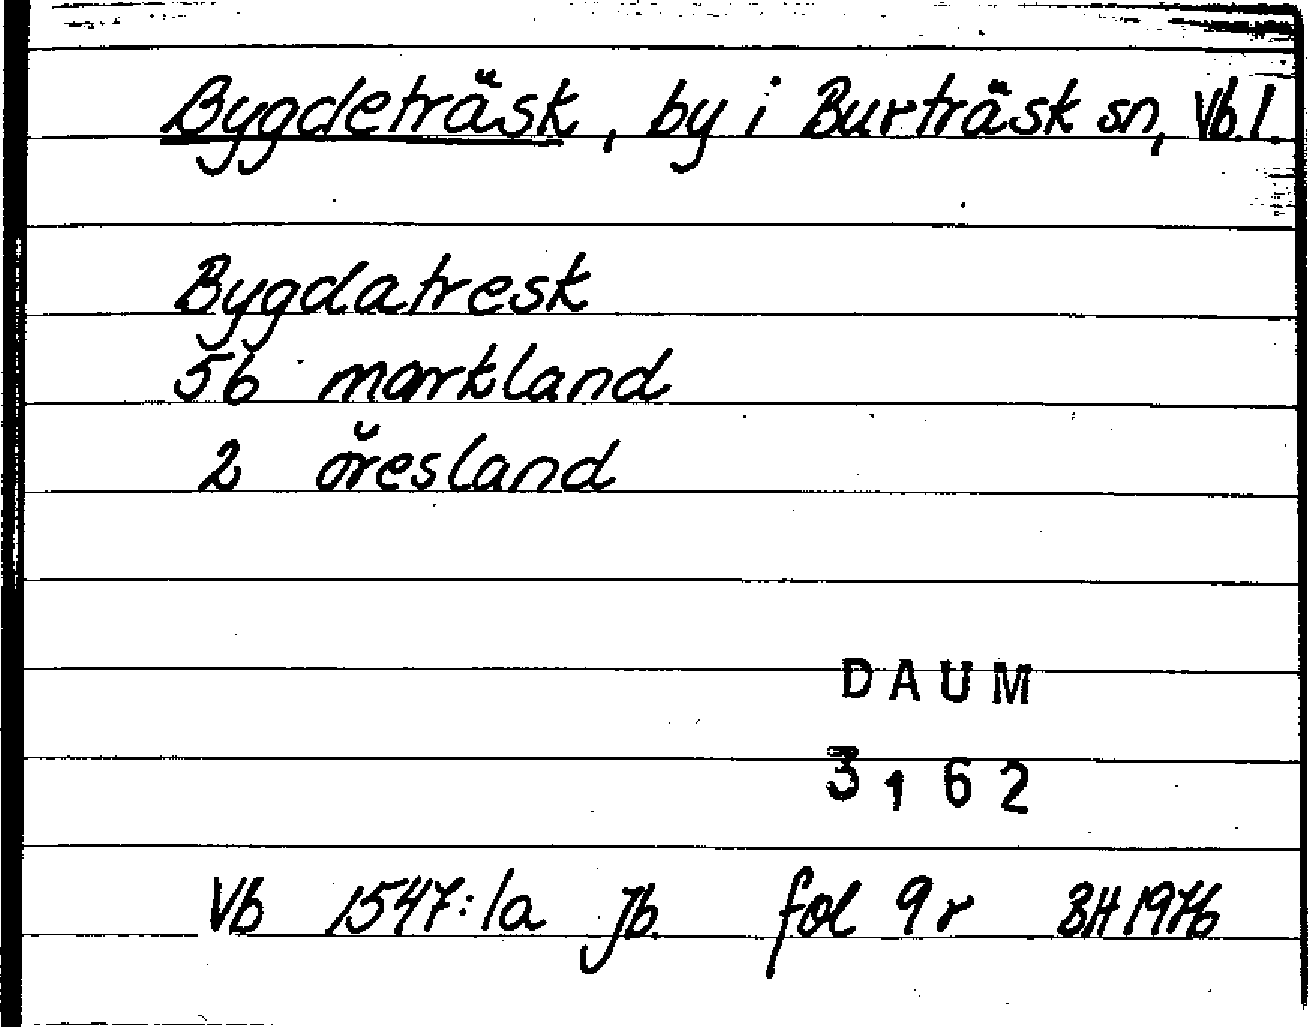 Bygdeträsk, by i Burträsk sn, Vb.l.
Bygdatresk
56 markland
2 öresland
DAUM
3162
Vb 1547:1a Jb. fol 9r BH 1976